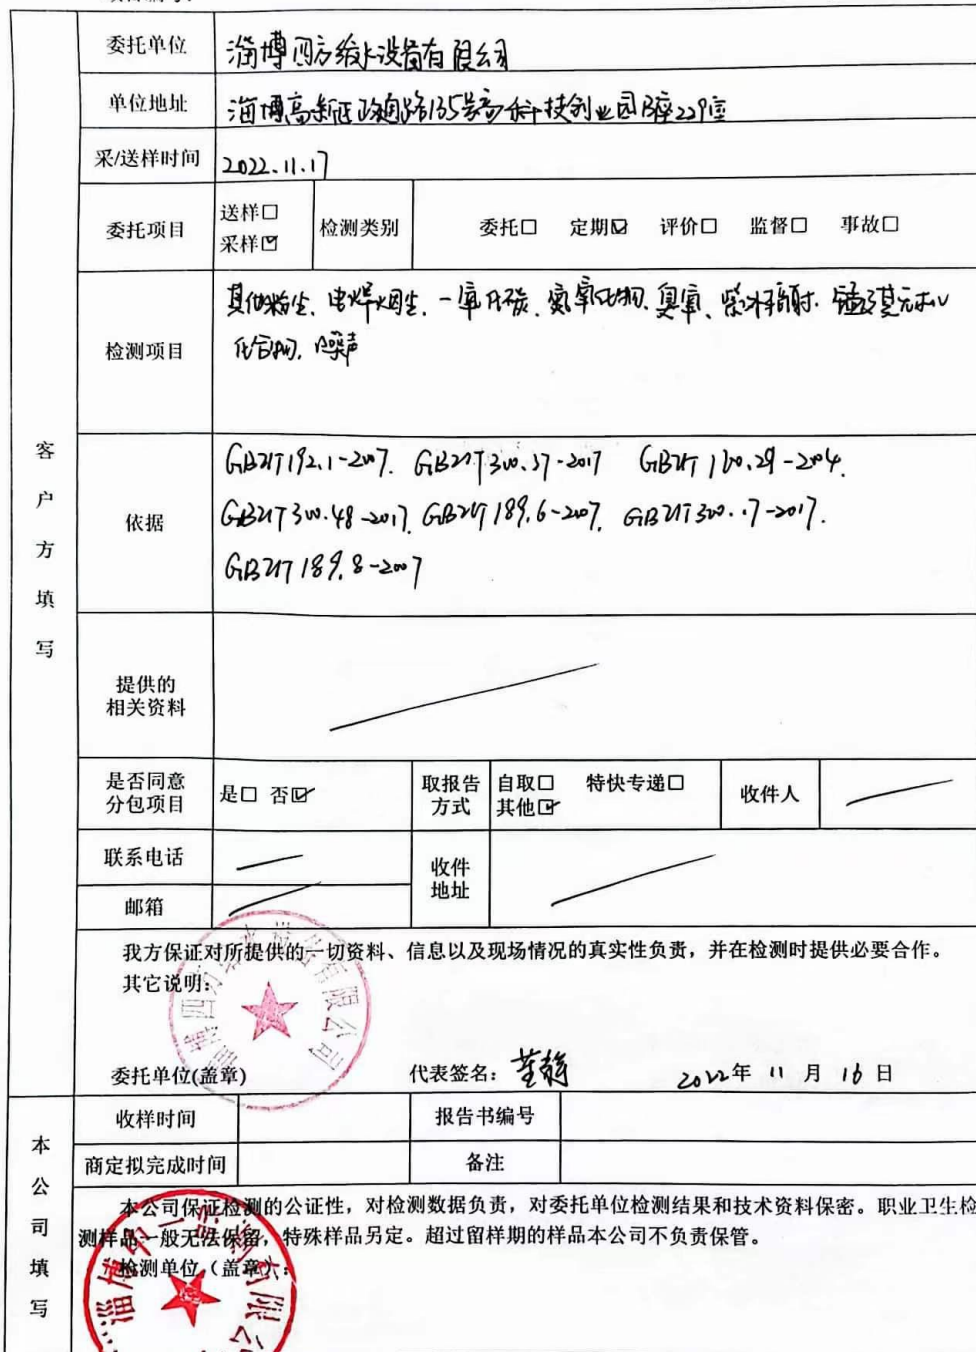 委托单位 淄博四方给水设备有限公司
单位地址 淄博高新区政通路135号高科技创业园B座229室
采/送样时间 2022.11.17
委托项目 送样□ 采样☑ 检测类别 委托□ 定期☑ 评价□ 监督□ 事故□
检测项目 其他粉尘、电焊烟尘、一氧化碳、氮氧化物、臭氧、紫外辐射、锰及其无机
化合物、噪声
客户方填写
依据 GBZ/T 192.1-2007. GBZ/T 300.37-2017 GBZ/T 160.29-2004.
GBZ/T 300.48-2017. GBZ/T 189.6-2007. GBZ/T 300.17-2017.
GBZ/T 189.8-2007
提供的
相关资料
是否同意
分包项目 是□ 否☑ 取报告
方式 自取□ 特快专递□
其他☑ 收件人
联系电话 收件
地址
邮箱
我方保证对所提供的一切资料、信息以及现场情况的真实性负责，并在检测时提供必要合作。
其它说明：
委托单位(盖章) 代表签名： 2022年 11 月 16 日
收样时间 报告书编号
商定拟完成时间 备注
本公司填写
本公司保证检测的公证性，对检测数据负责，对委托单位检测结果和技术资料保密。职业卫生检
测样品一般无法保留，特殊样品另定。超过留样期的样品本公司不负责保管。
检测单位（盖章）：